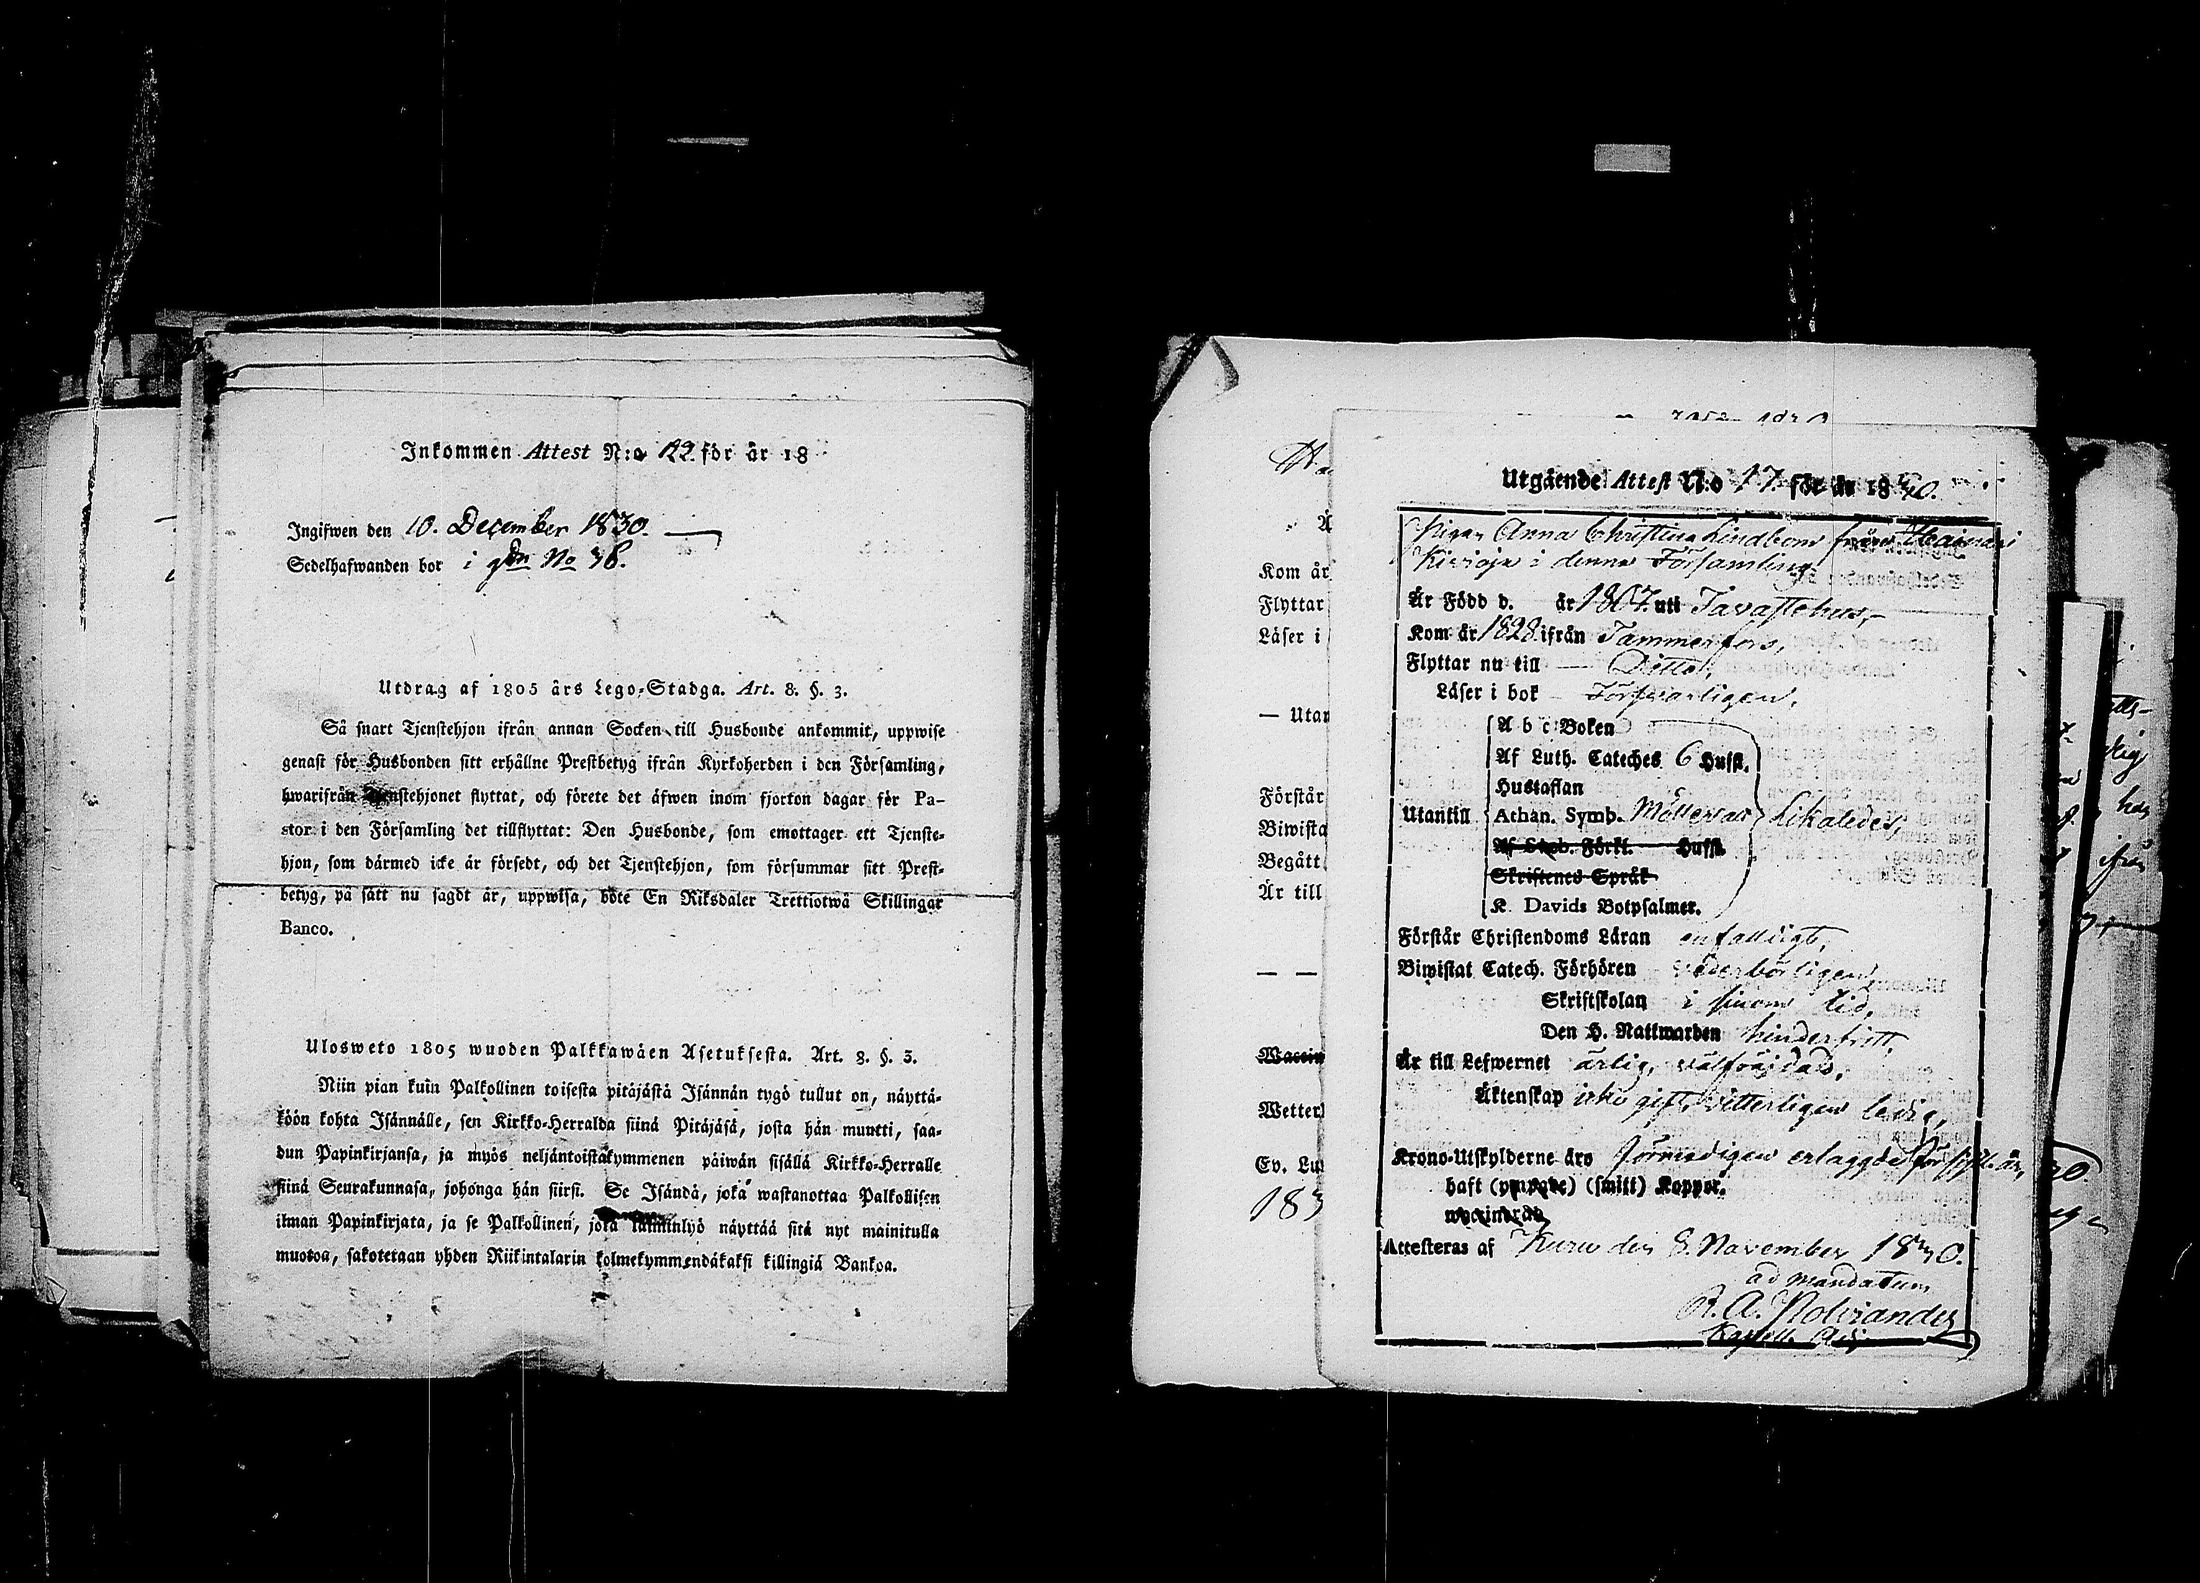 Inkommen Attest N:o 122. för år 18
Ingifwen den 10. December 1830.
Sedelhafwanden bor i gdn No 38.
Utdrag af 1805 års Lego-Stadga. Art. 8. §. 3.
Så snart Tjenstehjon ifrån annan Socken till Husbonde ankommit, uppwise
genast för Husbonden sitt erhållne Prestbetyg ifrån Kyrkoherden i den Församling,
hwarifrån Tjenstehjonet flyttat, och förete det äfwen inom fjorton dagar för Pa-
stor i den Församling det tillflyttat: Den Husbonde, som emottager ett Tjenste-
hjon, som därmed icke är försedt, och det Tjenstehjon, som försummar sitt Prest-
betyg, på sätt nu sagdt är, uppwisa, böte En Riksdaler Trettiotwå Skillingar
Banco.
Ulosweto 1805 wuoden Palkkawäen Asetuksesta. Art. 8. §. 3.
Niin pian kuin Palkollinen toisesta pitäjästä Isännän tygö tullut on, näyttä-
köön kohta Isännälle, sen Kirkko-Herralda siinä Pitäjäsä, josta hän muutti, saa-
dun Papinkirjansa, ja myös neljäntoistakymmenen päiwän sisällä Kirkko-Herralle
siinä Seurakunnasa, johonga hän siirsi. Se Isändä, joka wastanottaa Palkollisen
ilman Papinkirjata, ja se Palkollinen, joka laiminlyö näyttää sitä nyt mainitulla
muotoa, sakotetaan yhden Riikintalarin kolmekymmendäkaksi killingiä Bankoa.
Kom år
Flyttar
Läser i
— Utan
Förstår
Biwista
Begått
Är till
— —
Waccin
Wetter
Ev. Lu
183
Utgående Attest N:o 17. för år 1830.
Pigan Anna Christina Lindbom från
i denna Församling
Är Född d. år 1807. uti Tavastehus,
Kom år 1828. ifrån Tammerfors,
Flyttar nu till — Ditto,
Läser i bok Försvarligen,
A b c Boken
Af Luth. Cateches 6 Huffst.
Hustaflan
Utantill Athan. Symb. Likaledes,
Af Steb. Förkl. Huffst.
Skriftenes Språk
K. Davids Botpsalmer.
Förstår Christendoms Läran enfaldigt,
Biwistat Catech. Förhören vederbörligen,
Skriftskolan i sinom tid,
Den H. Nattwarden hinderfritt,
Är till Lefwernet ärlig, välfräjdad,
Äktenskap icke gift, vitterligen ledig,
Krono-Utskylderne äro erlagde för sistl. år,
haft (ympade) (smitt) Koppor.
waccinerad
Attesteras af Kuru den 8. November 1830.
ad mandatum